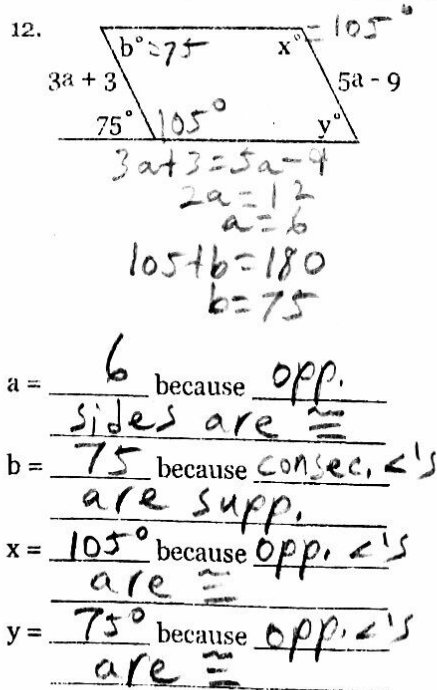 12.
b°=75 x° =105°
3a + 3 5a - 9
75° 105° y°
3a+3=5a-9
2a=12
a=6
105+b=180
b=75
a = 6 because opp.
sides are ≅
b = 75 because consec. <'s
are supp.
x = 105° because opp. <'s
are ≅
y = 75° because opp. <'s
are ≅